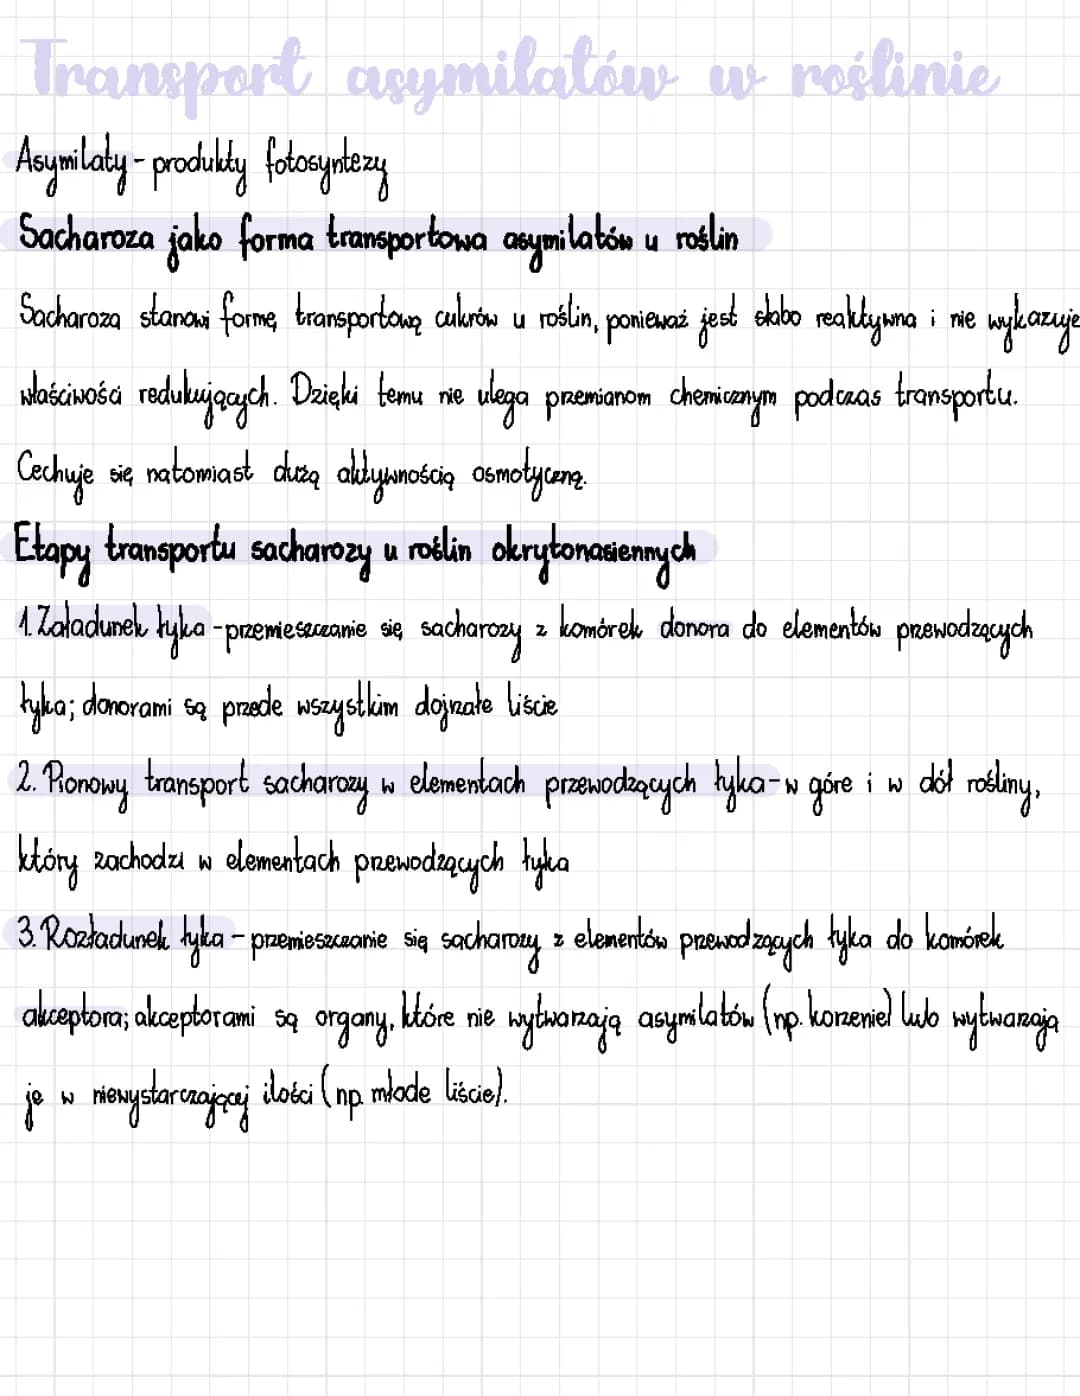 Transport asymilatów w roślinie
Asymilaty - produkty fotosyntezy
Sacharoza jako forma transportowa asymilatów u roślin
Sacharoza stanowi formę transportową cukrów u roślin, ponieważ jest słabo reaktywna i nie wykazuje
właściwości redukujących. Dzięki temu nie ulega przemianom chemicznym podczas transportu.
Cechuje się natomiast dużą aktywnością osmotyczną.
Etapy transportu sacharozy u roślin okrytonasiennych
1. Załadunek łyka - przemieszczanie się sacharozy z komórek donora do elementów przewodzących
łyka; donorami są przede wszystkim dojrzałe liście
2. Pionowy transport sacharozy w elementach przewodzących łyka - w góre i w dół rośliny,
który zachodzi w elementach przewodzących łyka
3. Rozładunek łyka - przemieszczanie się sacharozy z elementów przewodzących łyka do komórek
akceptora; akceptorami są organy, które nie wytwarzają asymilatów (np. korzenie) lub wytwarzają
je w niewystarczającej ilości (np. młode liście).